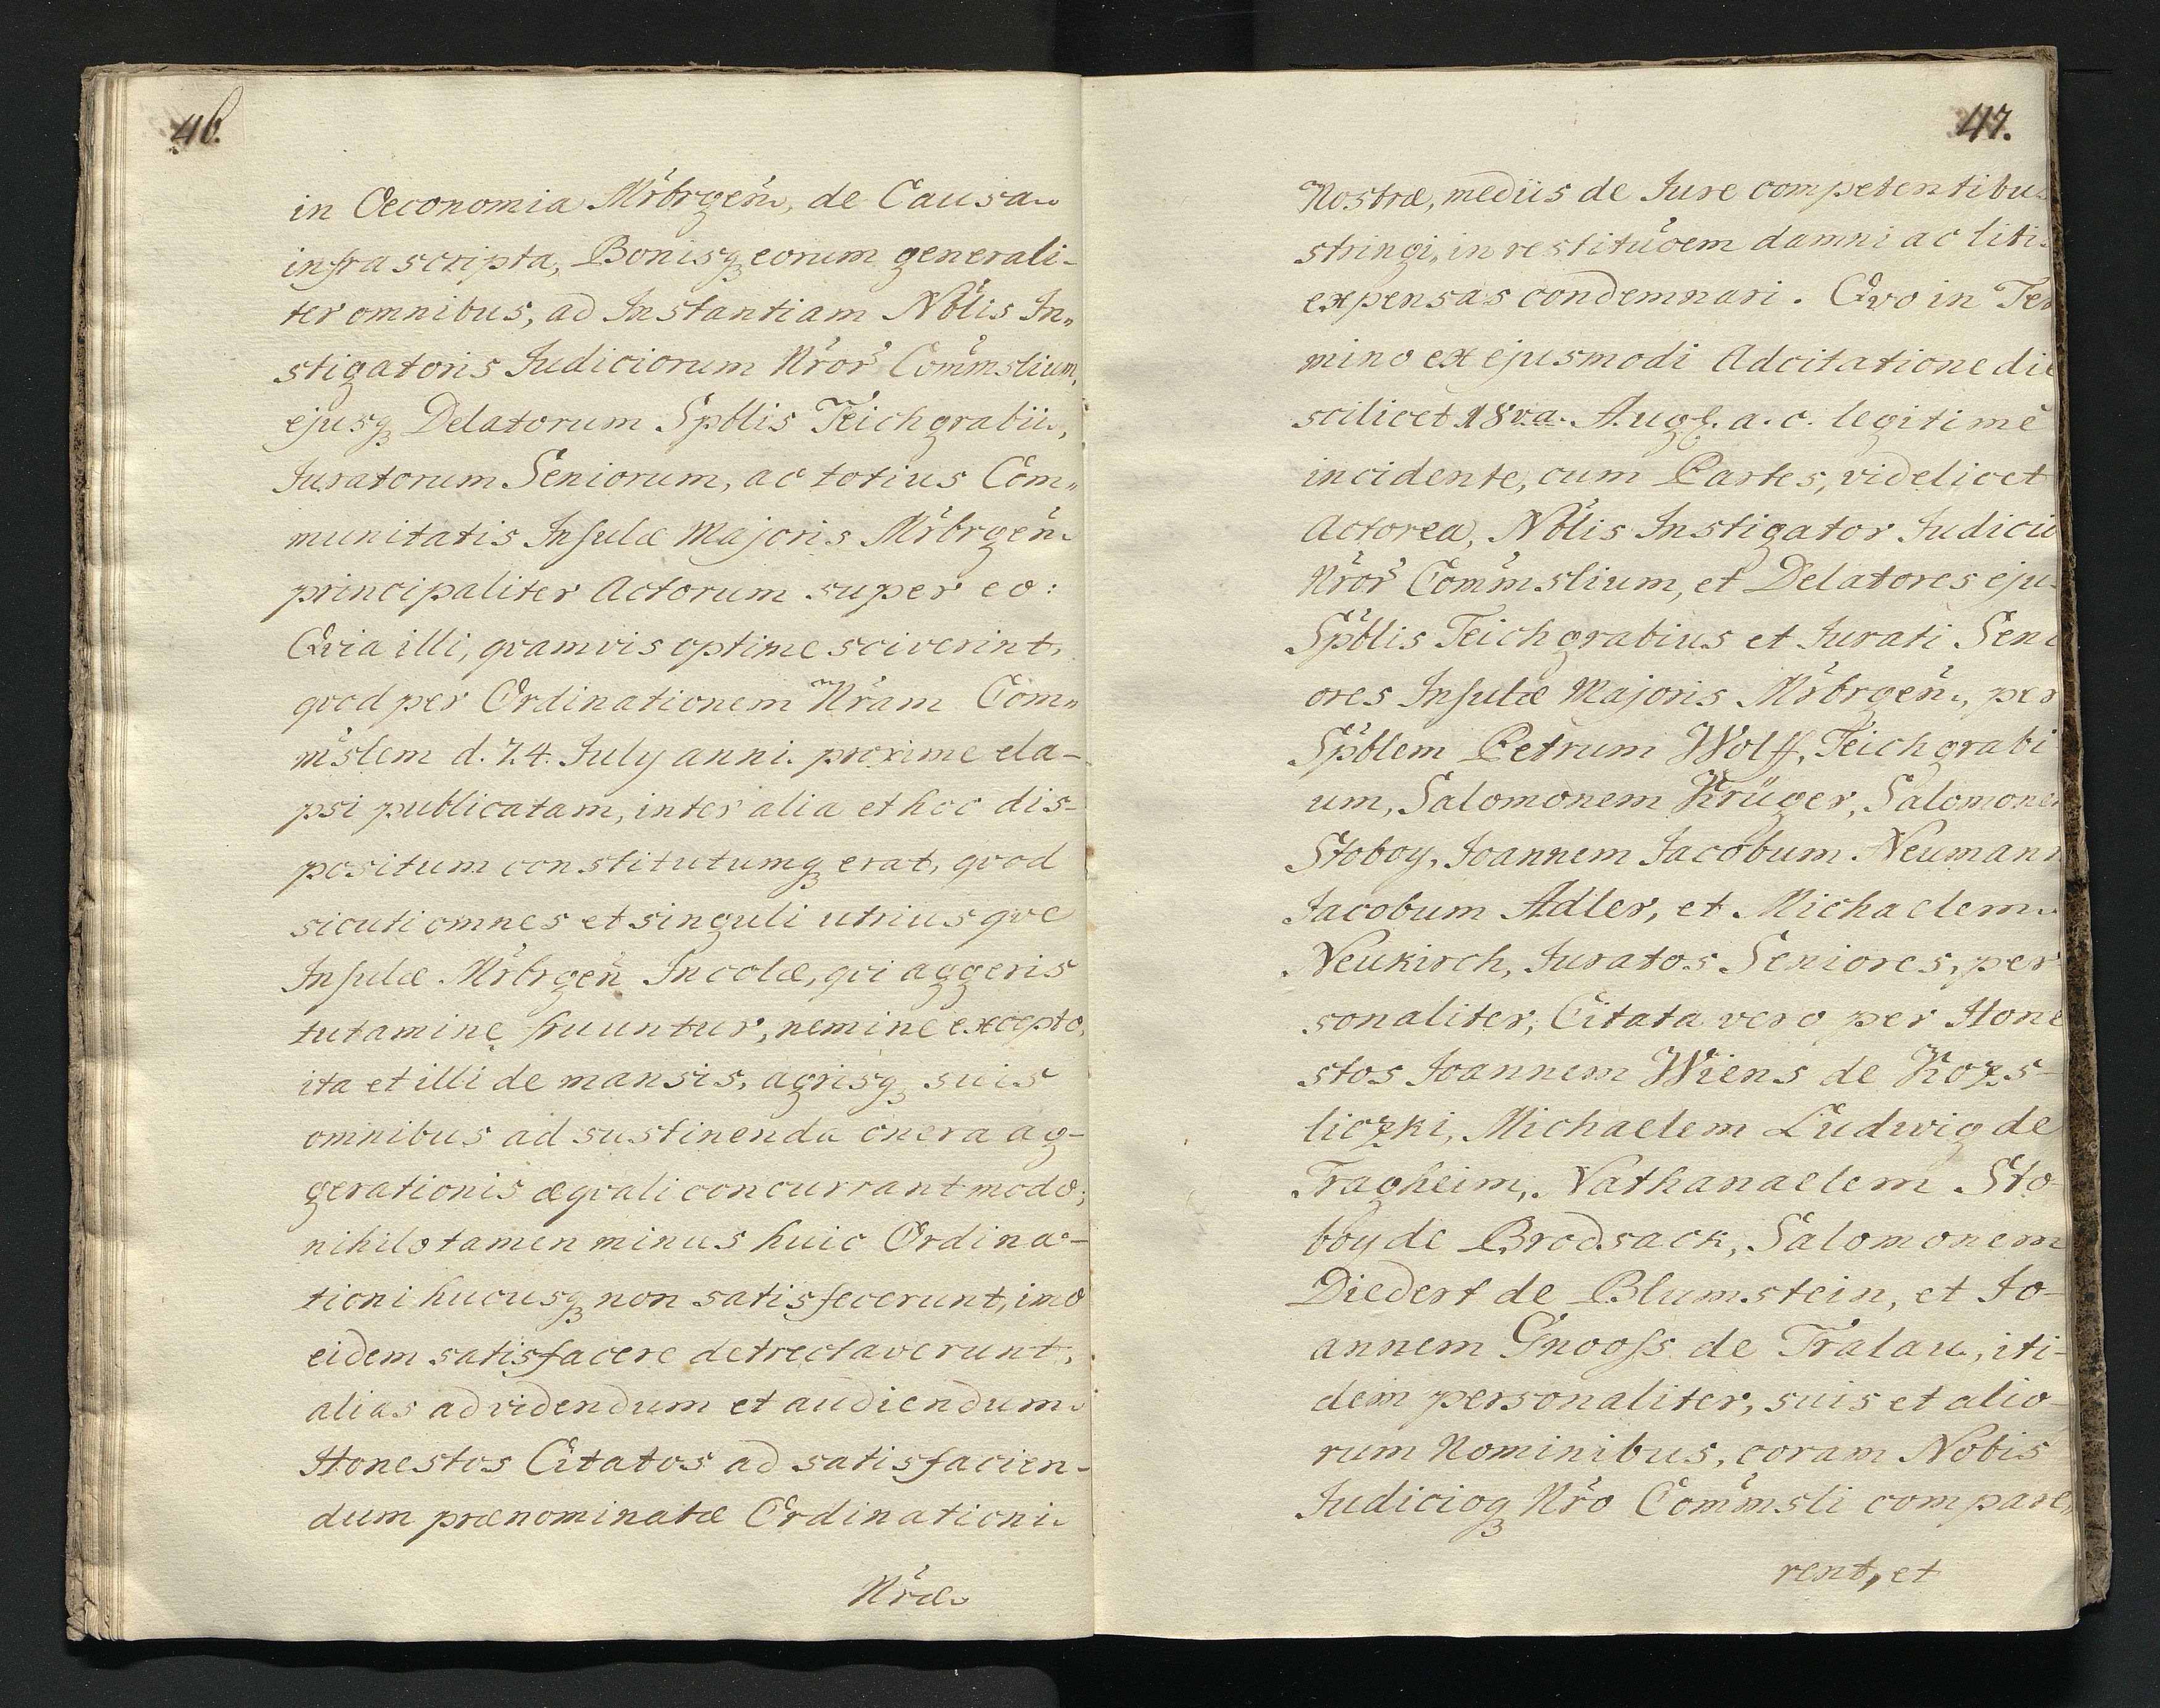 46.
in Oeconomia Mrbrgen, de Causa
infra scripta, Bonisq eorum generali-
ter omnibus, ad Instantiam Nblis In„
stigatoris Judiciorum Nror Commslium,
ejusq Delatorum Spblis Teichgrabii,
Juratorum Seniorum, ac totius Com„
munitatis Insulæ Majoris Mrbrgen.
principaliter Actorum super eo:
Qvia illi, qvamvis optime sciverint,
qvod per Ordinationem Nram Com„
mslem d. 24. July anni proxime ela-
psi publicatam, inter alia et hoc dis-
positum constitutumq erat, qvod
sicuti omnes et singuli utriusqve
Insulæ Mrbrgen Incolæ, qvi aggeris
tutamine fruuntur, nemine excepto,
ita et illi de mansis, agrisq suis
omnibus ad sustinenda onera ag-
gerationis æqvali concurrant modo;
nihilo tamen minus huic Ordina-
tioni hucusq non satisfecerunt, imo
eidem satisfacere detrectaverunt,
alias ad videndum et audiendum
Honestos Citatos ad satisfacien-
dum prænominatæ Ordinationi
Nræ
47.
Nostræ, mediis de Jure competentibus
stringi, in restituoem damni ac litis
expensas condemnari. Qvo in Ter
mino ex ejusmodi Adcitatione die
scilicet 18va. Aug. a. c. legitime
incidente, cum Partes, videlicet
Actorea, Nblis Instigator Judicio
Nror Commslium, et Delatores eju
Spblis Teichgrabius et Jurati Seni
ores Insulæ Majoris Mrbrgen, per
Spblem Petrum Wolff, Teichgrabi
um, Salomonem Krüger, Salomonem
Stoboy, Joannem Jacobum Neumann
Jacobum Adler, et Michaelem
Neukirch, Juratos Seniores, per
sonaliter, Citata vero per Hone
stos Joannem Wiens de Kozs-
liczki, Michaelem Ludwig de
Tragheim, Nathanaelem Sto-
boy de Brodsack, Salomonem
Diedert de Blumstein, et Jo-
annem Gnooss de Tralau, iti-
dem personaliter, suis et alio-
rum Nominibus, coram Nobis
Judicioq Nro Commsli compare„
rent, et